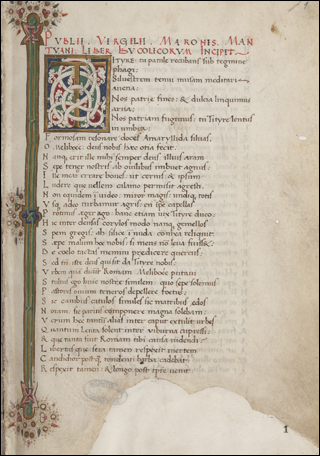 PVBLII. VIRGILII. MARONIS. MAN
TVANI. LIBER BVCOLICORVM INCIPIT.
TITYRE tu patule recubans sub tegmine
phagi:
Siluestrem tenui musam meditaris
auena:
Nos patrie fines: & dulcia linquimus
arua:
Nos patriam fugimus: tu Tityre lentus
in umbra:
Formosam resonare doces Amaryllida siluas.
O Meliboee: deus nobis haec otia fecit.
Nanq; erit ille mihi semper deus: illius aram
Sepe tener nostris ab ouilibus imbuet agnus:
Ille meas errare boues: ut cernis: & ipsum
Ludere que uellem calamo permisit agresti.
Non equidem inuideo: miror magis: undiq; totis
Vsq; adeo turbamur agris: en ipse capellas
Protinus aeger ago: hanc etiam uix Tityre duco:
Hic inter densas corylos modo nanq; gemellos
Spem gregis: ah silice in nuda connixa reliquit.
Saepe malum hoc nobis: si mens non leua fuisset
De coelo tactas memini predicere quercus.
Sed tamen iste deus qui sit da Tityre nobis.
Vrbem quam dicunt Romam Meliboee putaui
Stultus ego huic nostre similem: quo sepe solemus
Pastores ouium teneros depellere foetus:
Sic canibus catulos similes sic matribus edos
Noram: sic paruis componere magna solebam
Verum hec tantum alias inter caput extulit urbes
Quantum lenta solent inter uiburna cupressi.
& que tanta fuit Romam tibi causa uidendi:
Libertas que sera tamen respexit inertem
Candidior postq; tondenti barba cadebat
Respexit tamen: & longo post tpre uenit.
1